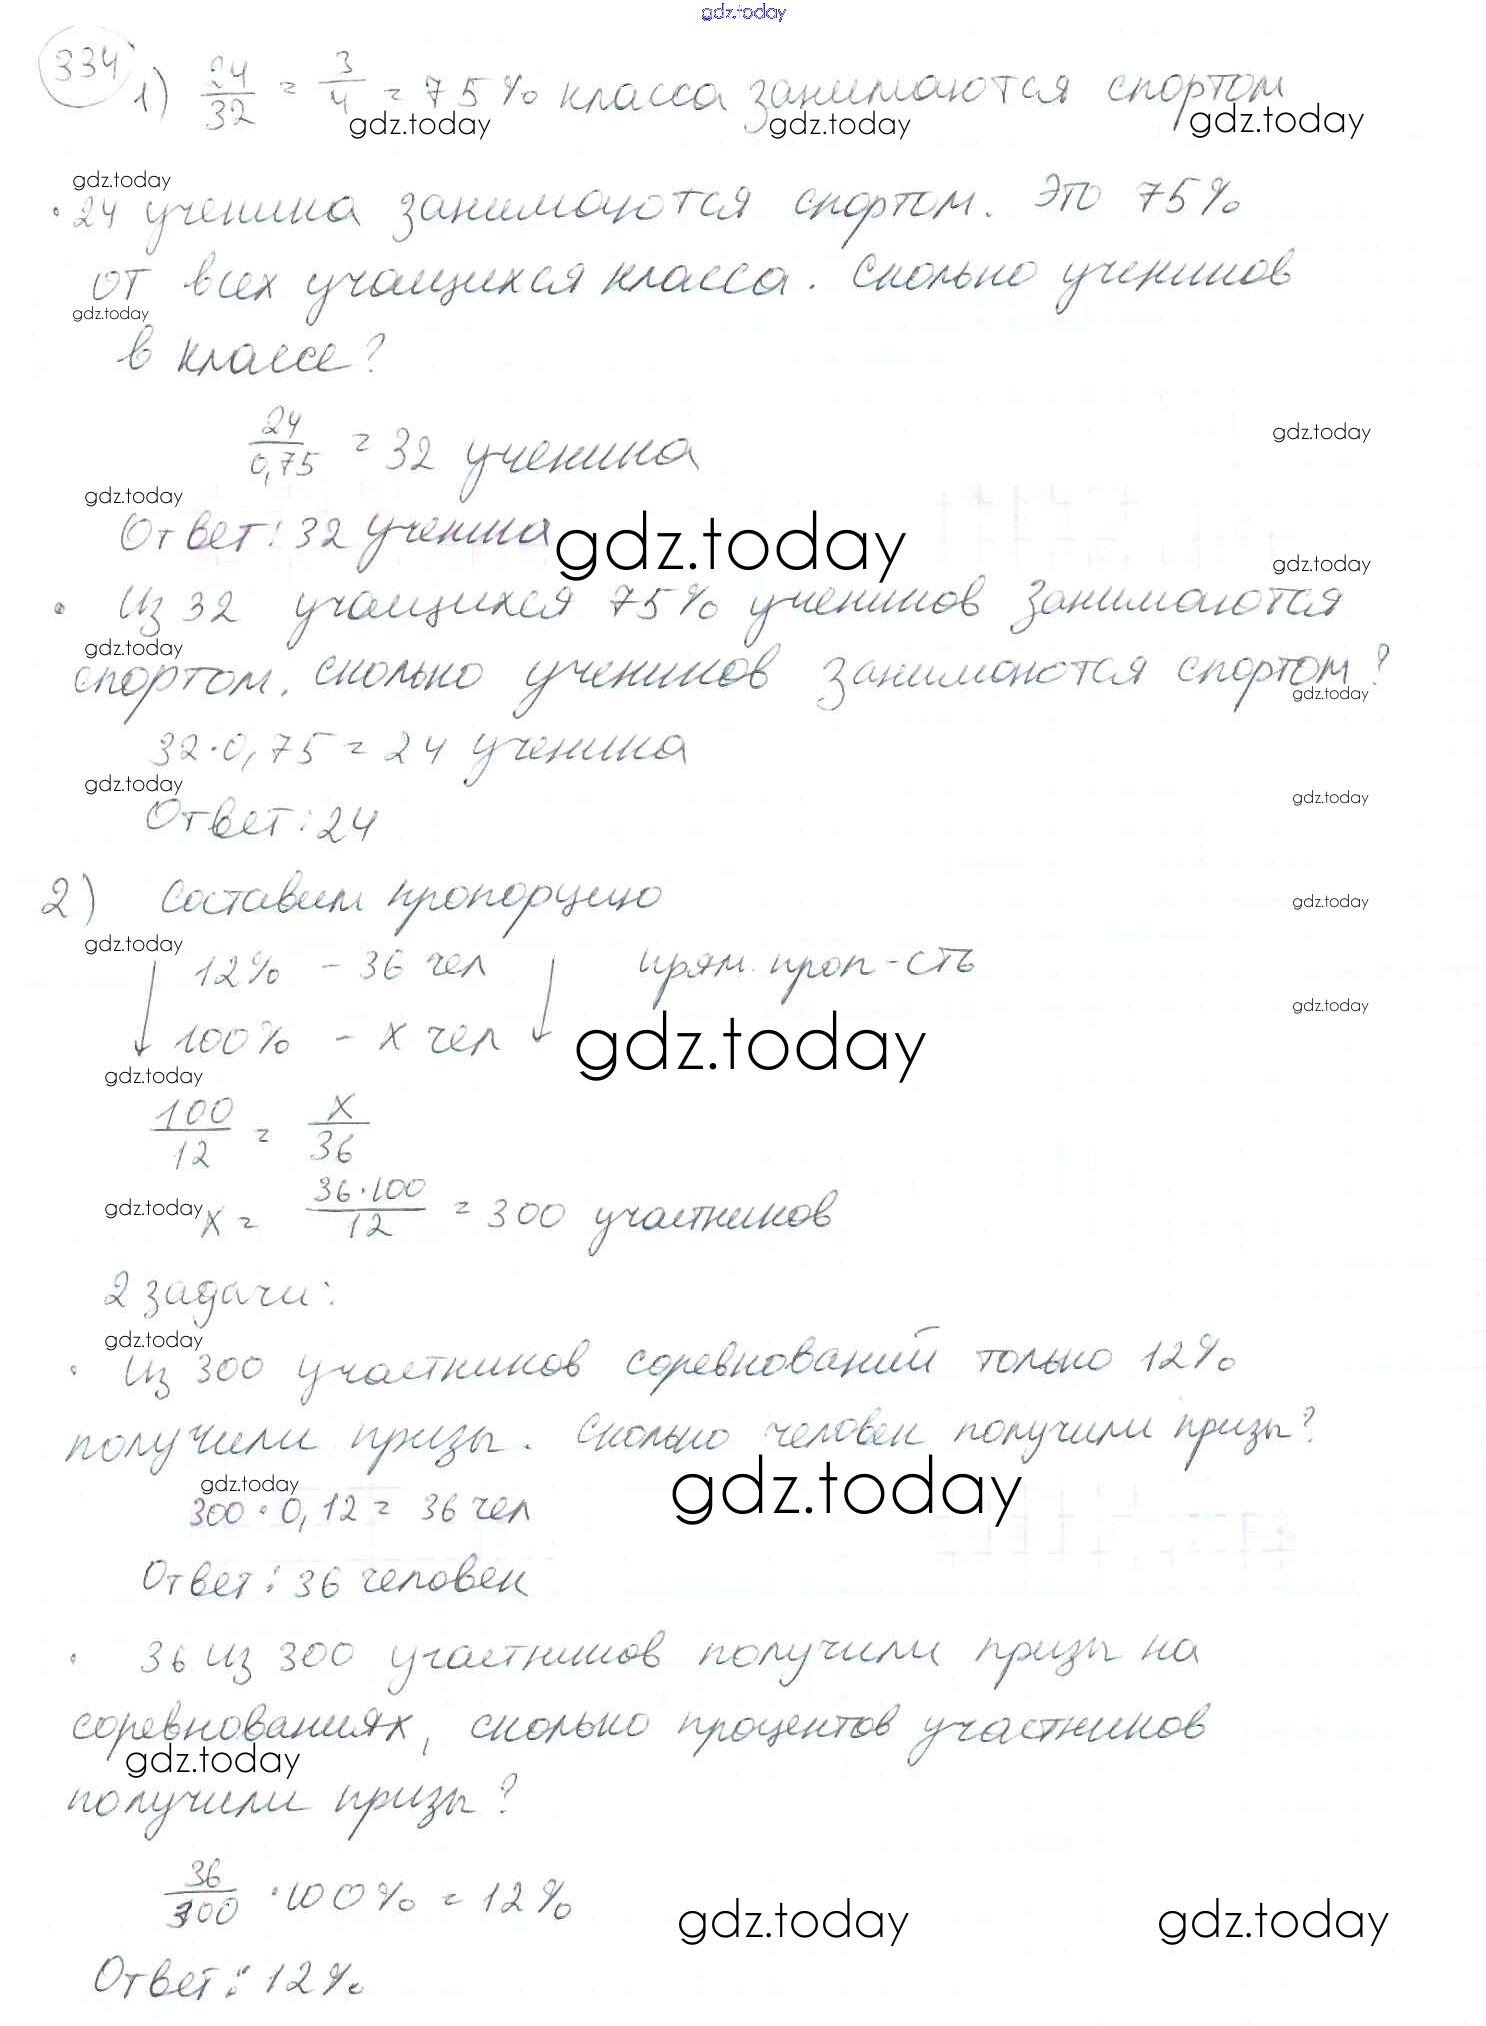 gdz.today
334
1) 24/32 = 3/4 = 75% класса занимаются спортом
gdz.today gdz.today gdz.today
gdz.today
• 24 ученика занимаются спортом. Это 75%
от всех учащихся класса. Сколько учеников
gdz.today
в классе?
24/0,75 = 32 ученика
gdz.today
gdz.today
Ответ: 32 ученика
gdz.today
gdz.today
• Из 32 учащихся 75% учеников занимаются
gdz.today
спортом. Сколько учеников занимаются спортом?
gdz.today
32·0,75 = 24 ученика
gdz.today
gdz.today
Ответ: 24
2) Составим пропорцию
gdz.today
gdz.today
↓ 12% – 36 чел ↓ прям. проп-сть
100% – x чел
gdz.today
gdz.today
gdz.today
100/12 = x/36
gdz.today
x = 36·100/12 = 300 участников
2 задачи:
gdz.today
• Из 300 участников соревнований только 12%
получили призы. Сколько человек получили призы?
gdz.today
gdz.today
300·0,12 = 36 чел
Ответ: 36 человек
• 36 из 300 участников получили призы на
соревнованиях, сколько процентов участников
gdz.today
получили призы?
36/300 · 100% = 12%
gdz.today gdz.today
Ответ: 12%